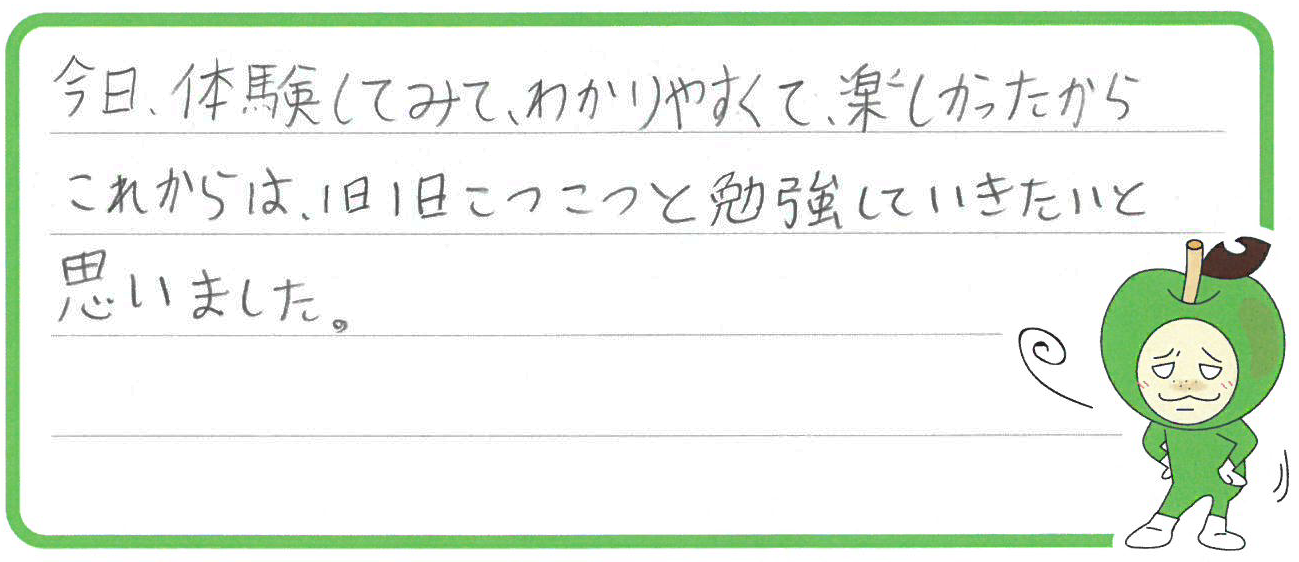 今日、体験してみて、わかりやすくて、楽しかったから
これからは、1日1日こつこつと勉強していきたいと
思いました。